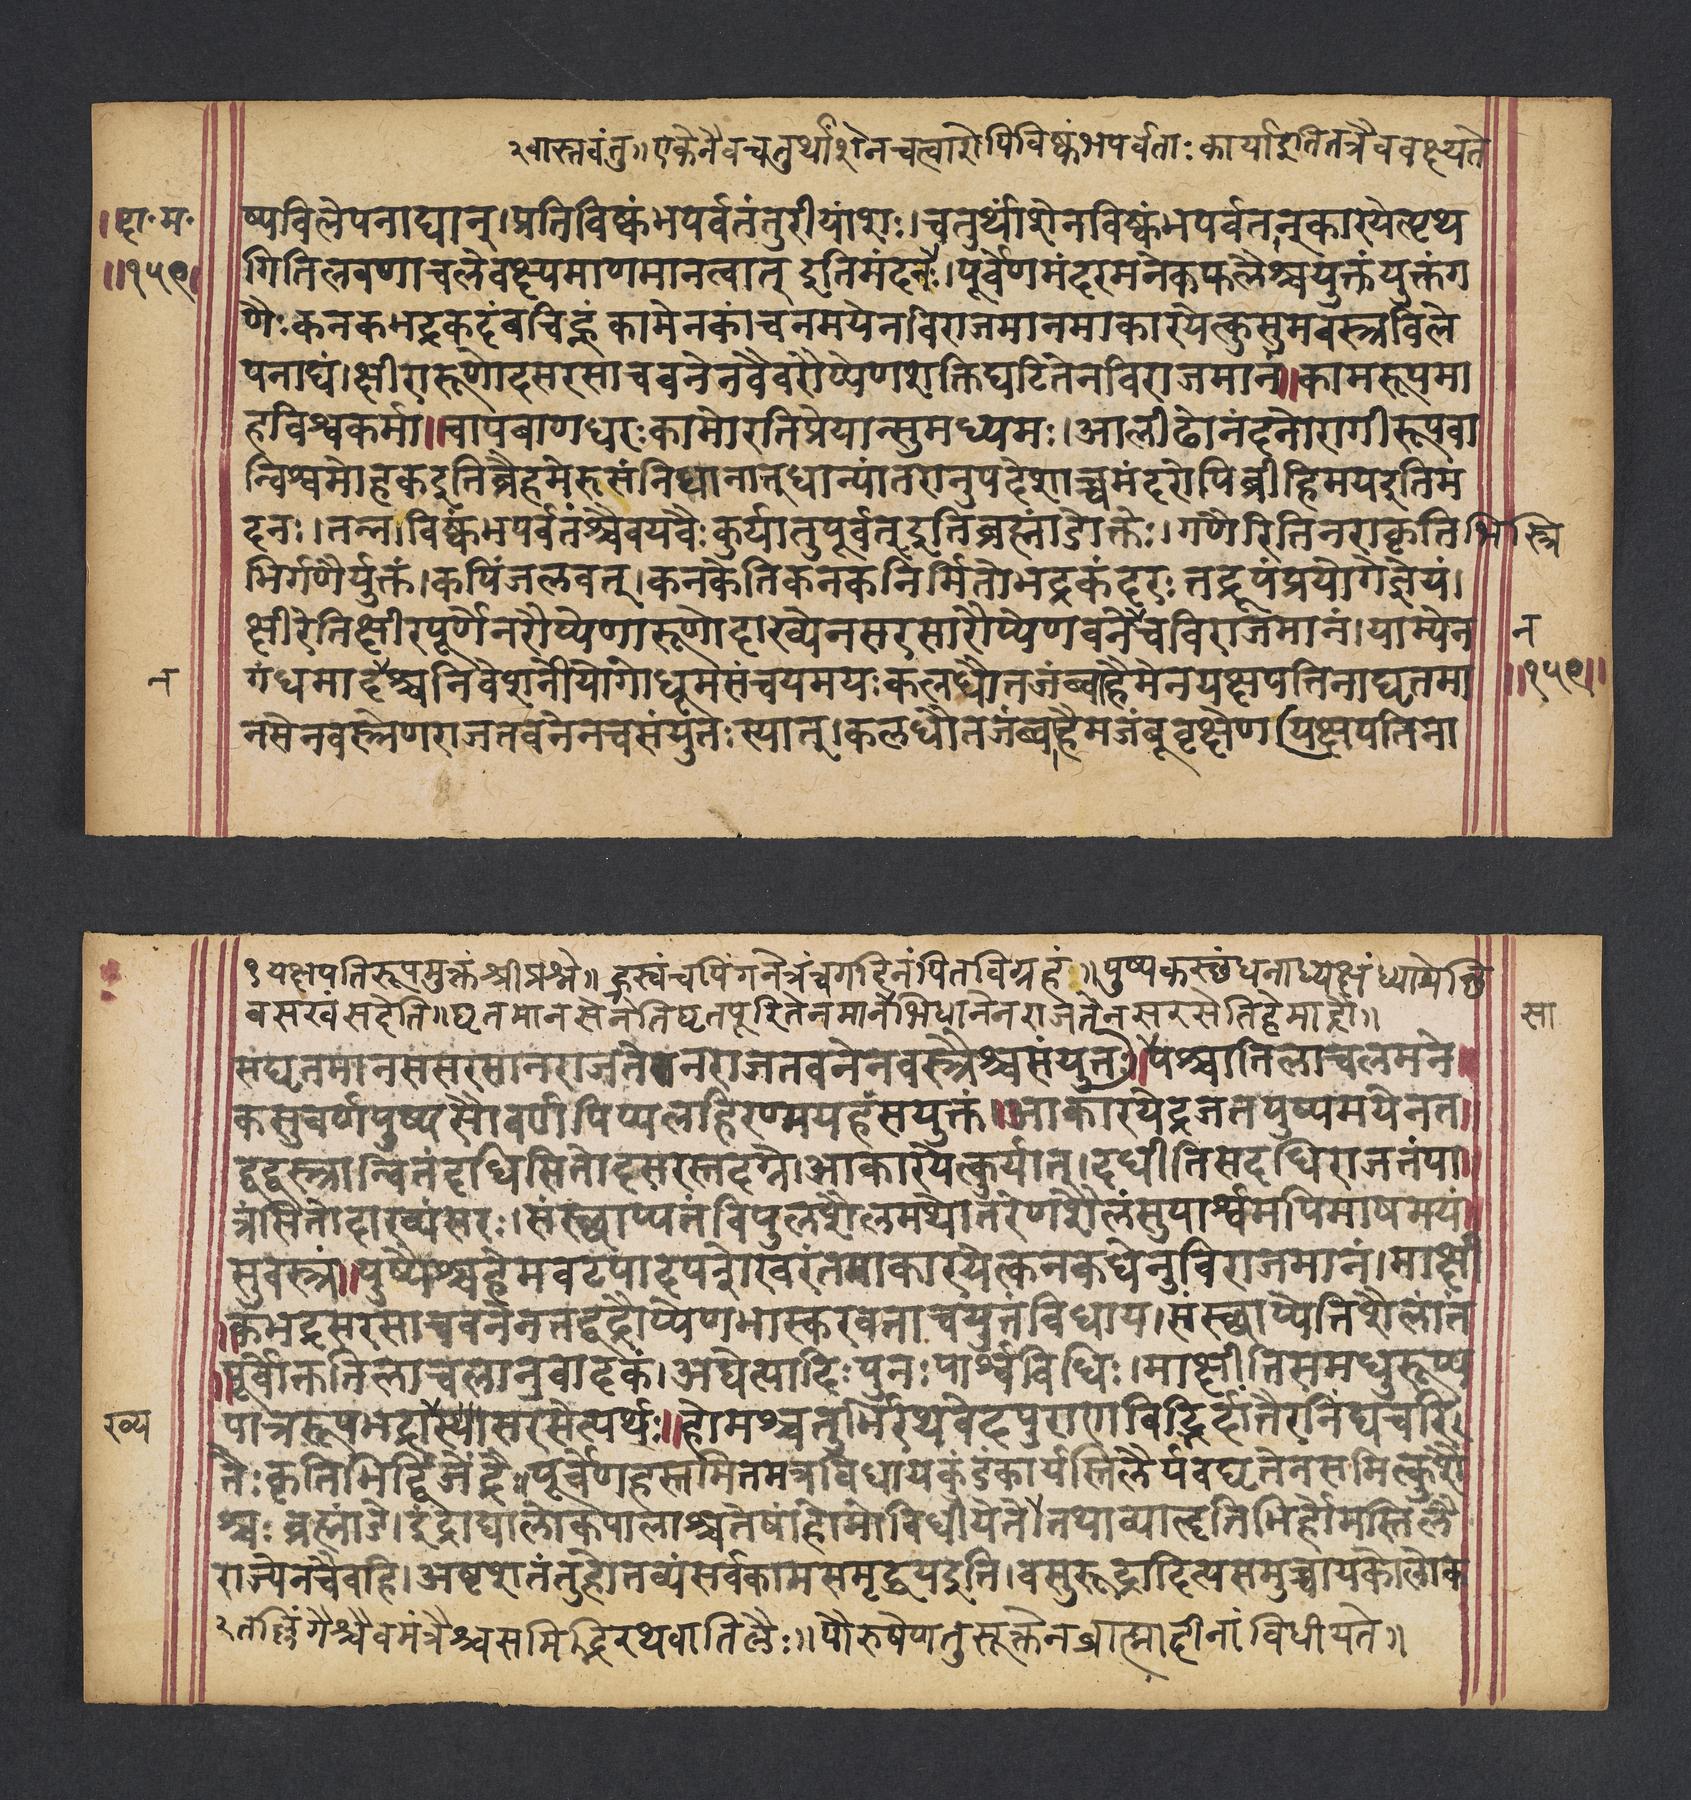 २वास्तवंतु॥एकेनैवचतुर्थांशेनचत्वारोपिविष्कंभपर्वताः कार्याइतितत्रैववक्ष्यते
॥दा॰म॰
॥१५९॥
ष्पविलेपनाद्यान्।प्रतिविष्कंभपर्वतंतुरीयांशः।चतुर्थांशेनविष्कंभपर्वतन्नुकारयेत्पृथ
गितिलवणाचलेवक्ष्यमाणमानत्वात् इतिमंदनः।पूर्वेणमंदरमनेकफलैश्चयुक्तंयुक्तंग
णैःकनकभद्रकदंबचिह्नं कामेनकांचनमयेनविराजमानमाकारयेत्कुसुमवस्त्रविले
पनाद्यं।क्षीरारुणोदसरसाचवनेनवैवरौप्येणशक्तिघटितेनविराजमानं॥कामरूपमा
हविश्वकर्मा॥चापबाणधरःकामोरतिप्रेयान्सुमध्यमः।आलीढोनंदनोरागीरूपवा
न्विश्वमोहकइतिव्रैहमेरुसंनिधानात्तुधान्यांतरानुपदेशाच्चमंदरोपिव्रीहिमयइतिम
दनः।तन्न।विष्कंभपर्वतंश्चैवयवैःकुर्यात्तुपूर्ववत्इतिब्रह्मांडोक्तेः।गणैरितिनराकृतिभिस्त्रि
भिर्गणैर्युक्तं।कपिंजलवत्।कनकेतिकनकनिर्मितोभद्रकंदरः तद्रूपंप्रयोगेज्ञेयं।
क्षीरेतिक्षीरपूर्णेनरौप्येणारुणोदाख्येनसरसारौप्येणवनेचविराजमानं।याम्येन
न
गंधमादश्चनिवेशनीयोगोधूमसंचयमयःकलधौतजंब्वाहैमेनयक्षपतिनाघृतमा
न
॥१५९॥
नसेनवस्त्रेणराजतवनेनचसंयुतःस्यात्।कलधौतजंब्वाहैमजंबूवृक्षेण यक्षपतिना
१यक्षपतिरूपमुक्तंश्रीप्रश्ने॥ह्रस्वंचपिंगनेत्रंचगदिनंपितविग्रहं॥पुष्पकस्थंधनाध्यक्षंध्यायेच्छि
वसखंसदेति॥घृतमानसेनेतिघृतपूरितेनमानेभिधानेनराजतेनसरसेतिहेमाद्रौ॥
सा
सघृतमानससरसानराजतेवनराजतवनेनवस्त्रैश्चसंयुतः॥पश्चात्तिलाचलमने
कसुवर्णपुष्पसौवर्णपिप्पलहिरण्मयहंसयुक्तं।आकारयेद्रजतपुष्पमयेनत
द्वद्वस्त्रान्वितंदधिसितोदसरस्तदग्रे।आकारयेत्कुर्यात्।दधीतिसदधिराजतंपा
त्रंसितोदाख्यंसरः।संस्थाप्यतंविपुलशैलमथोत्तरेणशैलंसुपार्श्वमपिमाषमयं
सुवस्त्रं॥पुष्पैश्चहेमवटपादपशेखरंतमाकारयेत्कनकधेनुविराजमानं।माक्षी
कभद्रसरसाचवनेनतद्वद्रौप्येणभास्करवताचयुतंविधाय।संस्थाप्येतिशैलांतं
पूर्वोक्ततिलाचलानुवादकं।अथेत्यादिःपुनःपार्श्वविधिः।माक्षीतिसमधुरूप्य
पात्ररूपभद्रास्यासरसेत्यर्थः॥होमश्चतुर्भिरथवेदपुराणविद्भिर्दांतैरनिंद्यचरि
ख्य
तैःकृतिभिर्द्विजेंद्रैः॥पूर्वेणहस्तमितमत्रविधायकुंडंकार्यस्तिलैर्यवघृतेनसमित्कुशै
श्चः ब्रह्मांडे।इंद्राद्यालोकपालाश्चतेषांहोमोविधीयते।तथाव्याहृतिभिर्होमस्तिलै
राज्येनचैवहि।अष्टशतंतुहोतव्यंसर्वकामसमृद्धयइति।वसुरुद्रादित्यसमुच्चायकोलोक
२तल्लिंगैश्चैवमंत्रैश्चसमिद्भिरथवातिलैः॥पौरुषेणतुसूक्तेनब्रात्मादीनांविधीयते॥